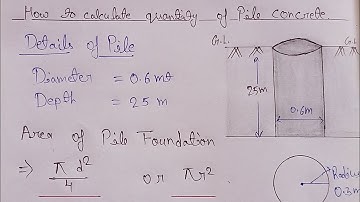 How to calculate quantity of Pile concrete.
Details of Pile
Diameter = 0.6 mt
Depth = 25 m
Area of Pile Foundation
⇒ π d²/4 or πr²
G.L. G.L.
25m
0.6m
Radius
0.3m